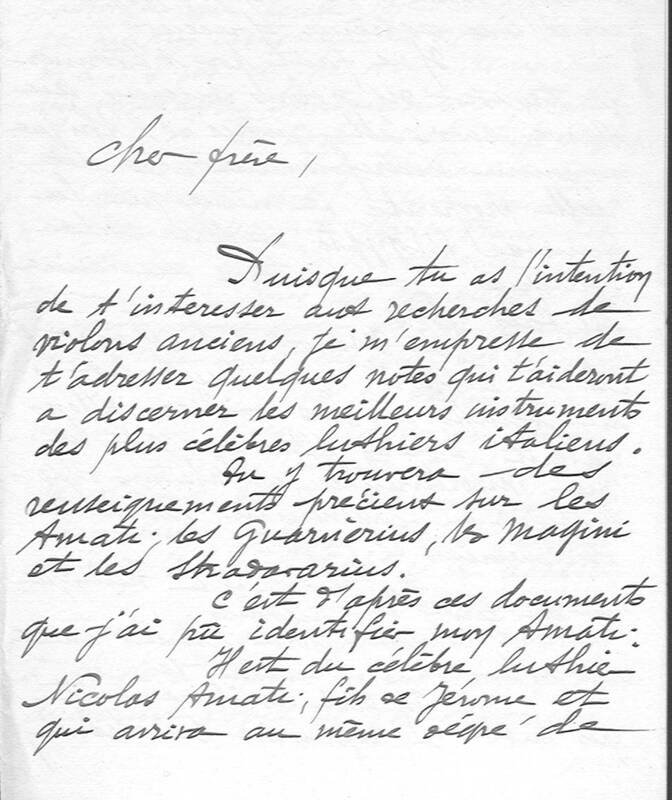 Cher frère,
Puisque tu as l'intention
de t'interesser aux recherches de
violons anciens, je m'empresse de
t'adresser quelques notes qui t'aideront
a discerner les meilleurs instruments
des plus célèbres luthiers italiens.
Tu y trouvera des
renseignements précieux sur les
Amati, les Guarnérius, les Magini
et les Stradavarius.
C'est d'après ces documents
que j'ai pû identifier mon Amati.
Il est du célèbre luthier
Nicolas Amati, fils de Jérome et
qui arriva au même dégré de